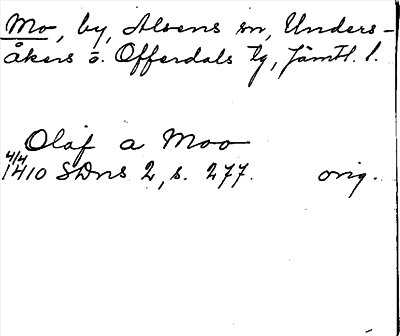 Mo, by, Alsens sn, Unders-
åkers o. Offerdals tg, Jämtl. l.
Olaf a Moo
4/4
1410 SDns 2, s. 277. orig.